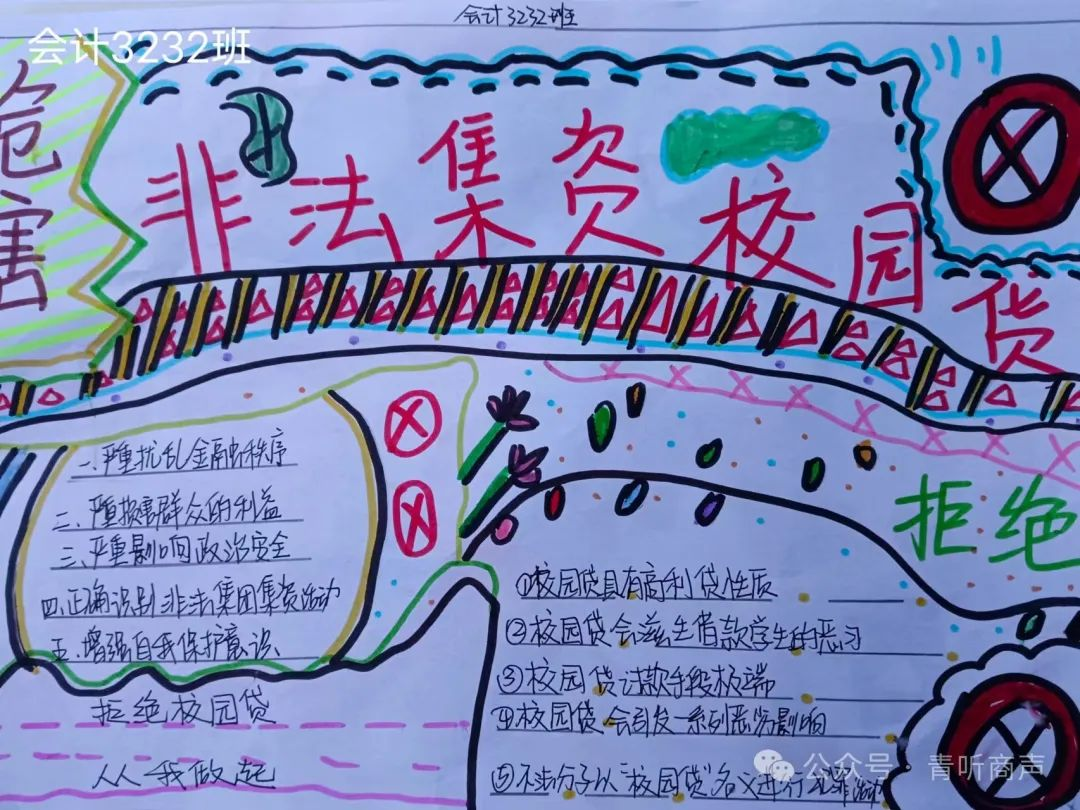 会计3232班
会计3232班
危害
非法集资校园贷
一、严重扰乱金融秩序
二、严重损害群众的利益
三、严重影响政治安全
四、正确识别非法集团集资活动
五、增强自我保护意识
拒绝校园贷
人人我做起
拒绝
①校园贷具有高利贷性质
②校园贷会滋生借款学生的恶习
③校园贷讨款手段极端
④校园贷会引发一系列恶劣影响
⑤不法分子以"校园贷"名义进行犯罪活动
公众号·青听商声